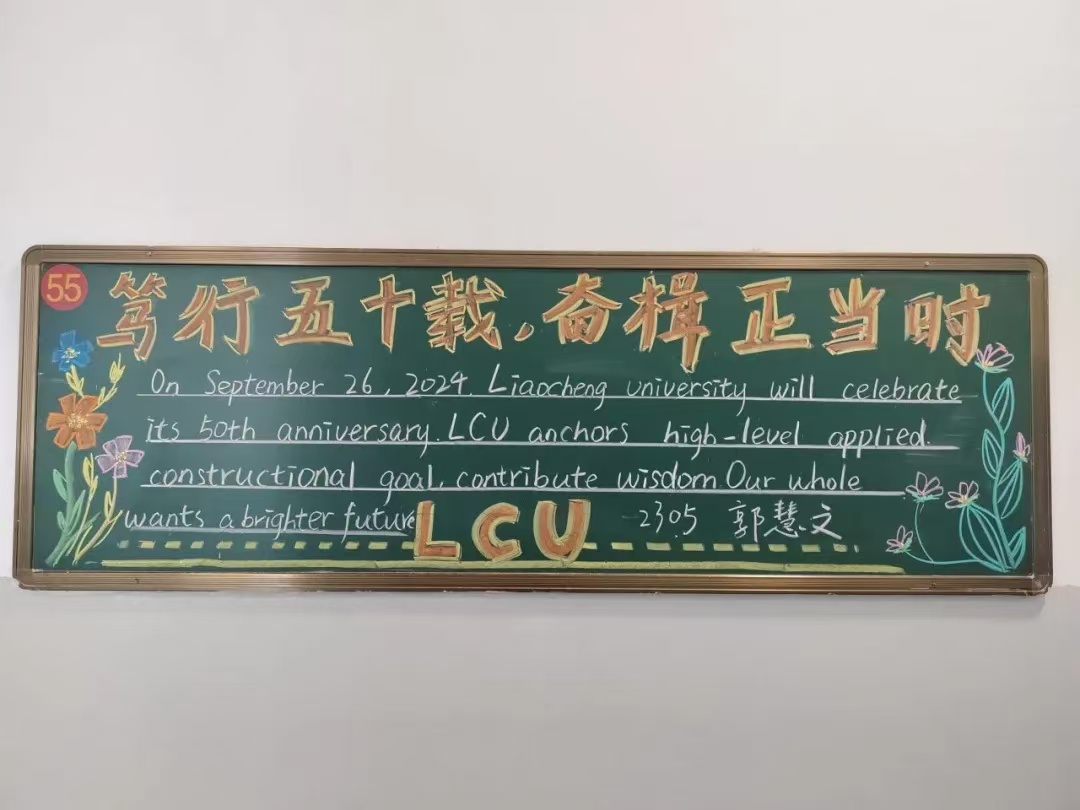 55
笃行五十载，奋楫正当时
On September 26, 2024. Liaocheng university will celebrate
its 50th anniversary. LCU anchors high-level applied.
constructional goal, contribute wisdom Our whole
wants a brighter future LCU 2305 郭慧文